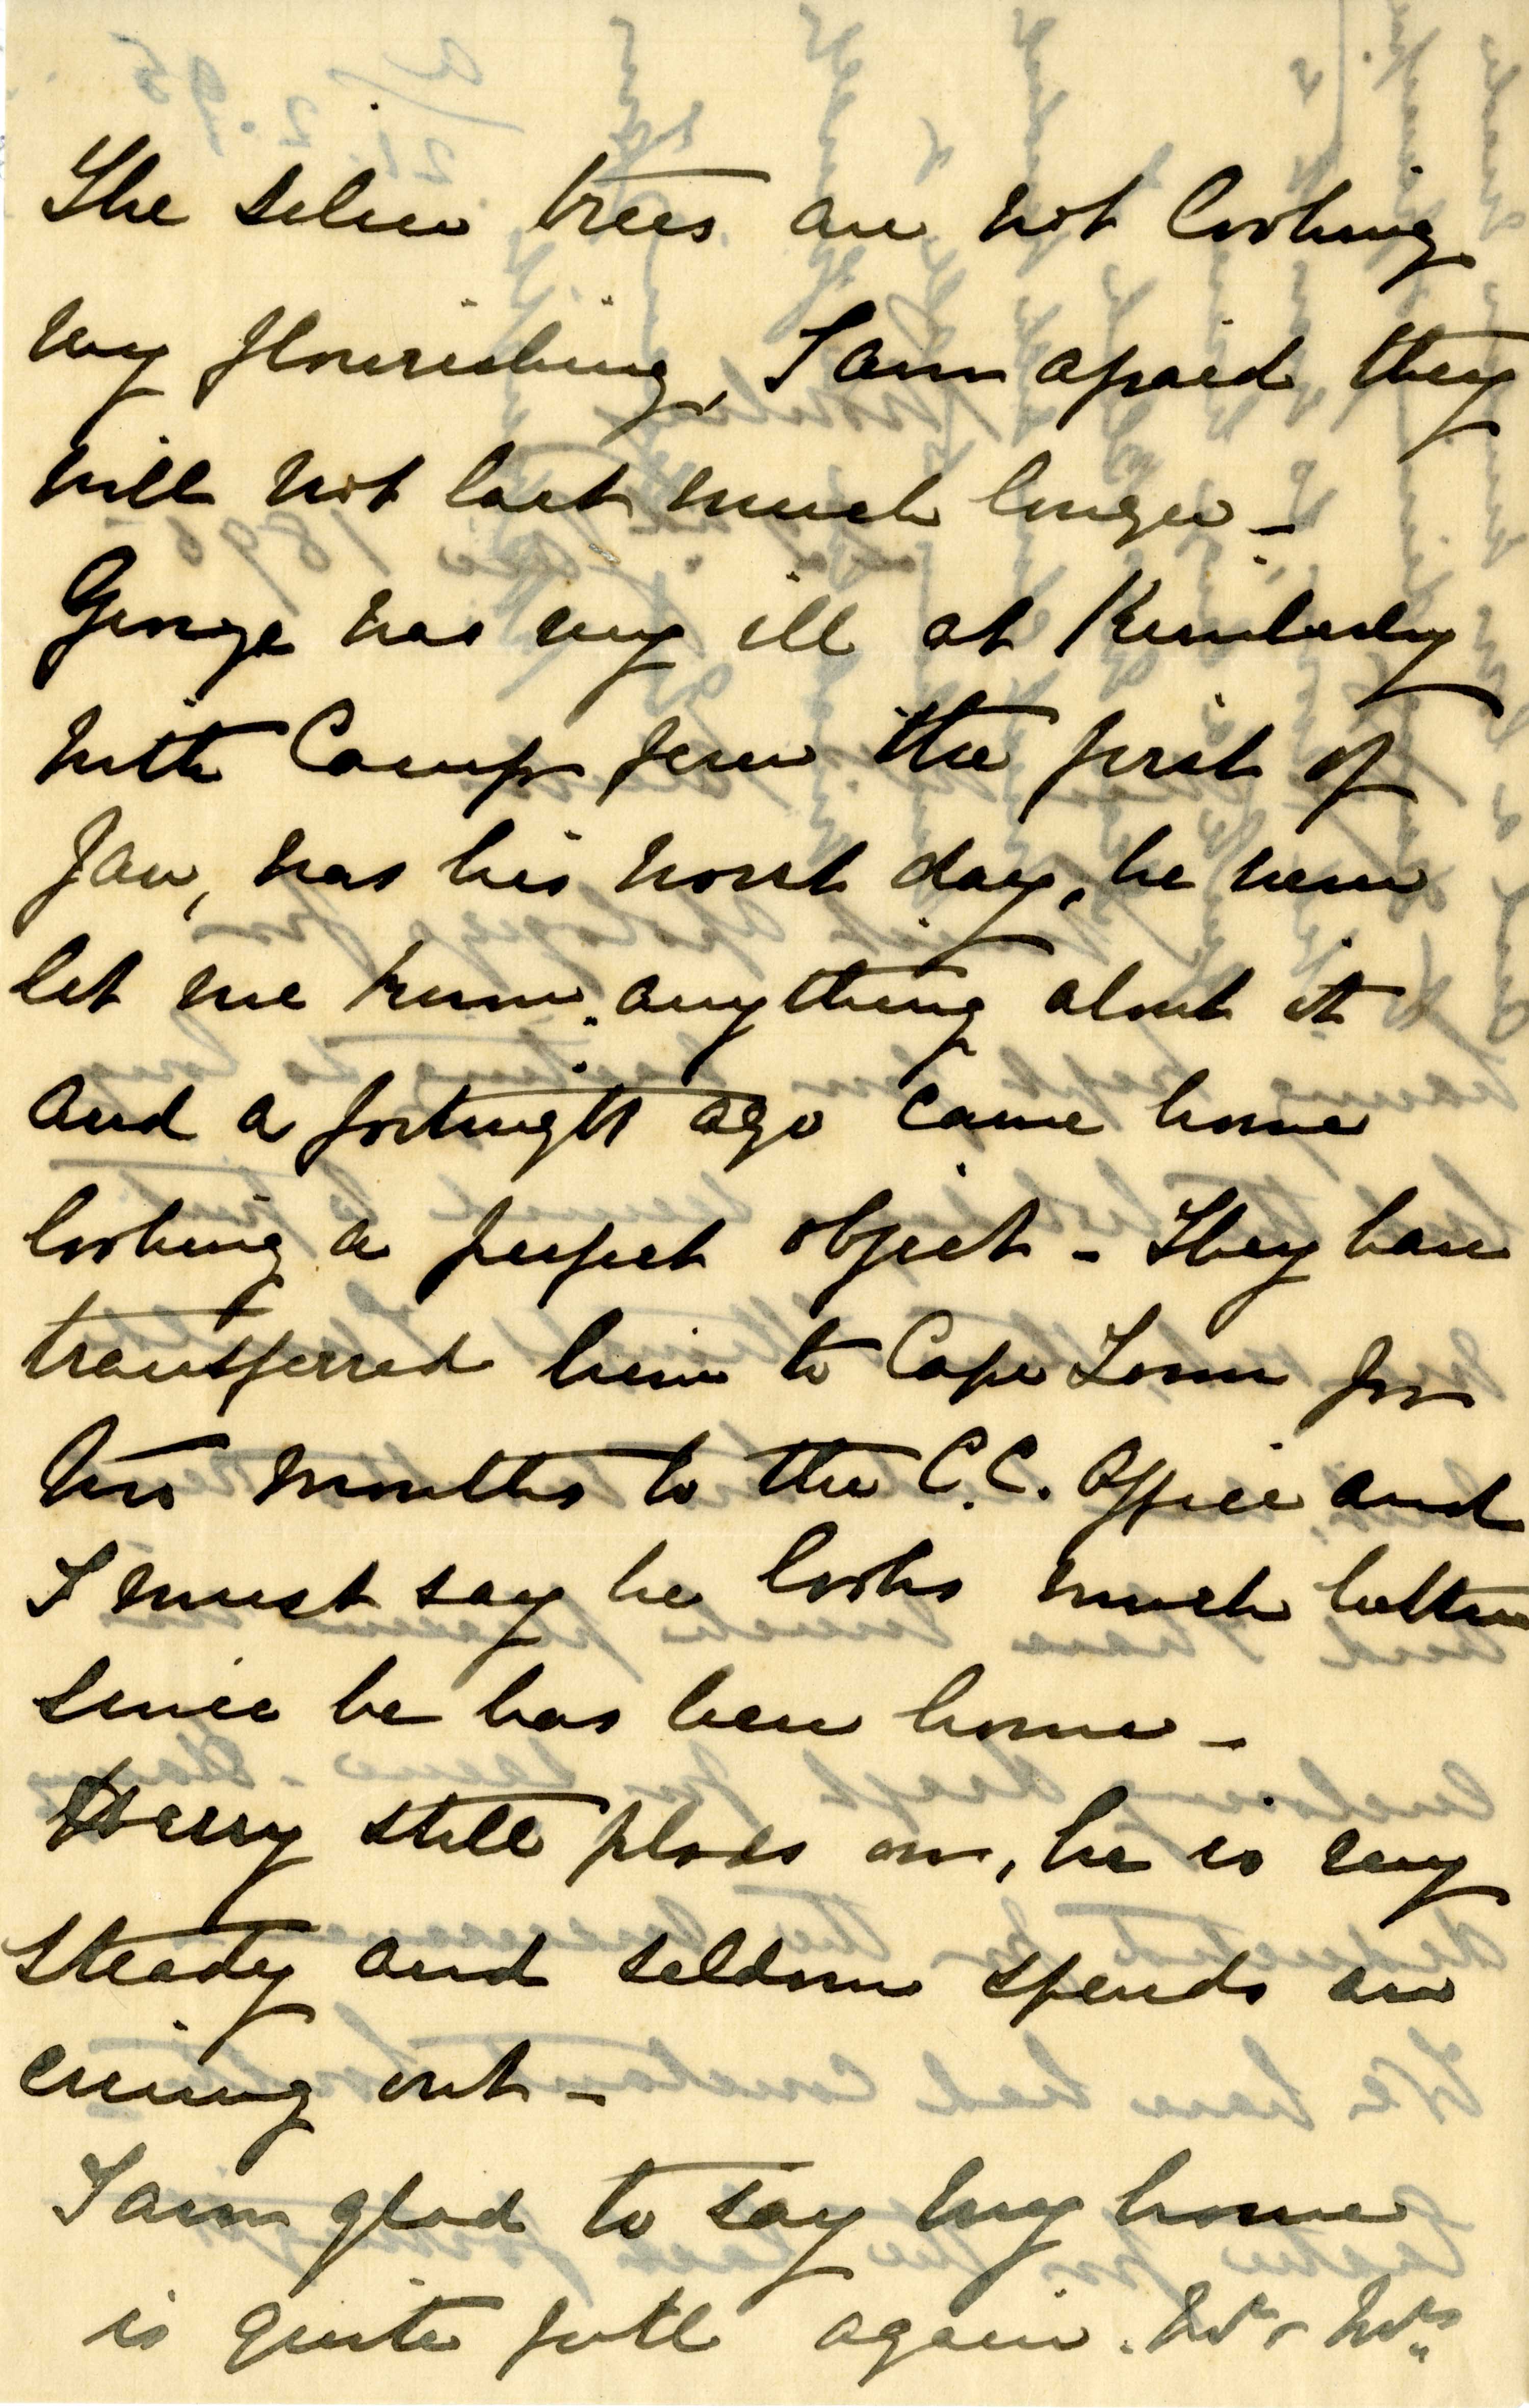 The silver trees are not looking
very flourishing, I am afraid they
will not last much longer –
George was very ill at Kimberley
with Camp fever the first of
Jan, was his worst day, he never
let me know anything about it
and a fortnight ago came home
looking a perfect object – They have
transferred him to Cape Town for
two months to the C.C. Office and
I must say he looks much better
since he has been home –
Harry still plods on, he is very
steady and seldom spends an
evening out –
I am glad to say my house
is quite full again. Mr & Mrs